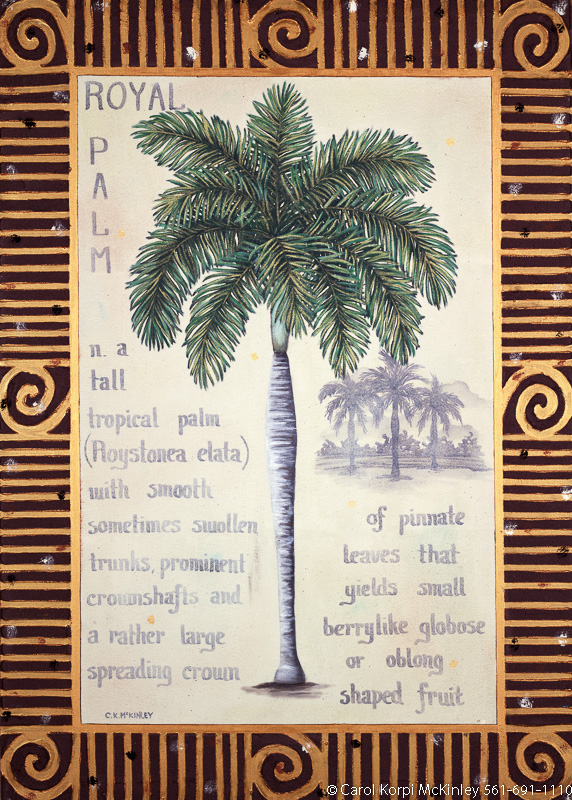 ROYAL
PALM
n. a
tall
tropical palm
(Roystonea elata)
with smooth
sometimes swollen
trunks, prominent
crownshafts and
a rather large
spreading crown
of pinnate
leaves that
yields small
berrylike globose
or oblong
shaped fruit
C.K. McKINLEY
© Carol Korpi McKinley 561-691-1110